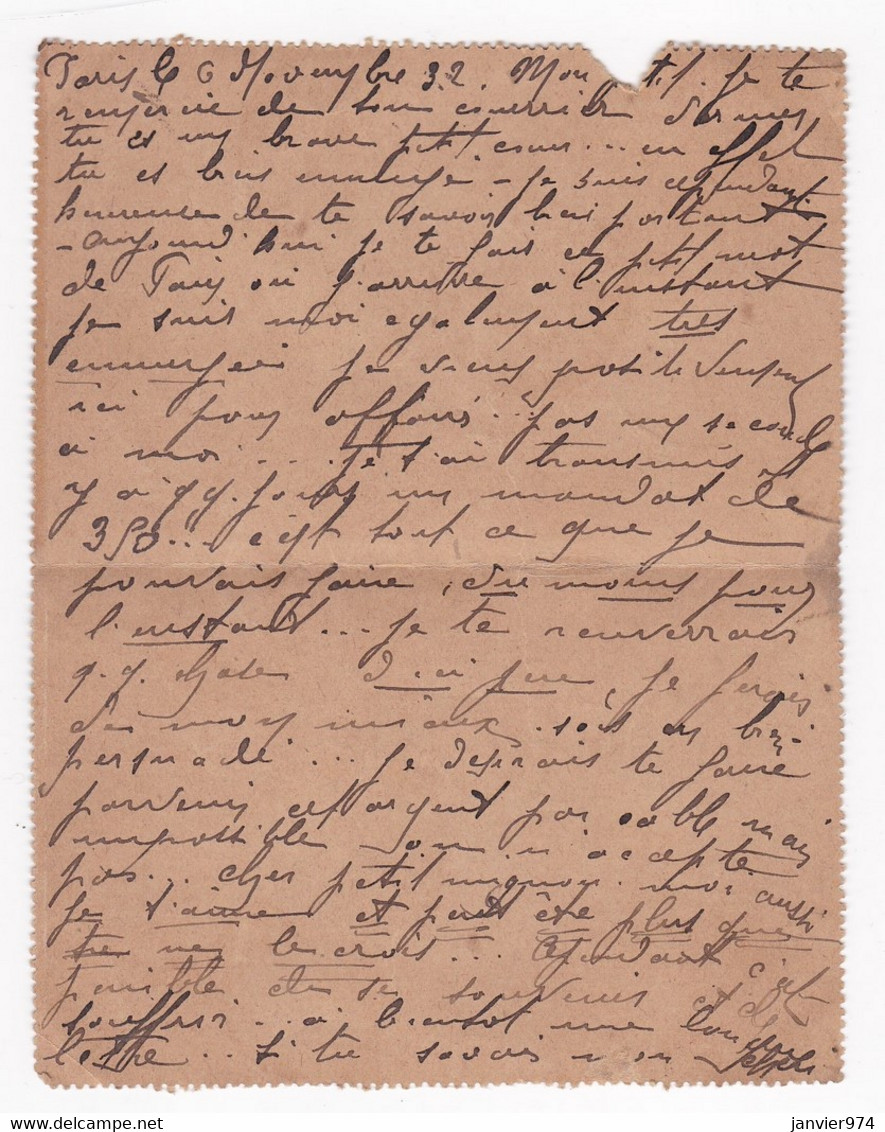 Paris le 6 Novembre 32. Mon ptit. Je te
remercie de ton courrier
tu es un brave petit cœur... en effet
tu es bien ennuyé - je suis cependant
heureuse de te savoir bien portant
- aujourd'hui je te fais ce petit mot
de Paris où j'arrive à l'instant
je suis moi également très
ennuyée je viens
ici pour affaires.. pas une seconde
à moi... Je t'ai transmis
y a qq. jours un mandat de
350... c'est tout ce que je
pouvais faire, du moins pour
l'instant... je te renverrais
q.q. chose d'ici peu, je ferais
de mon mieux. sois en bien
persuadé... Je désirais te faire
parvenir cet argent par cable mais
impossible on n'accepte
pas... cher petit mignon. moi aussi
je t'aime et peut être plus que
tu ne le crois... Cependant c'est
pénible de se souvenir et de
souffrir... à bientôt une longue
lettre.. si tu savais mon
janvier974